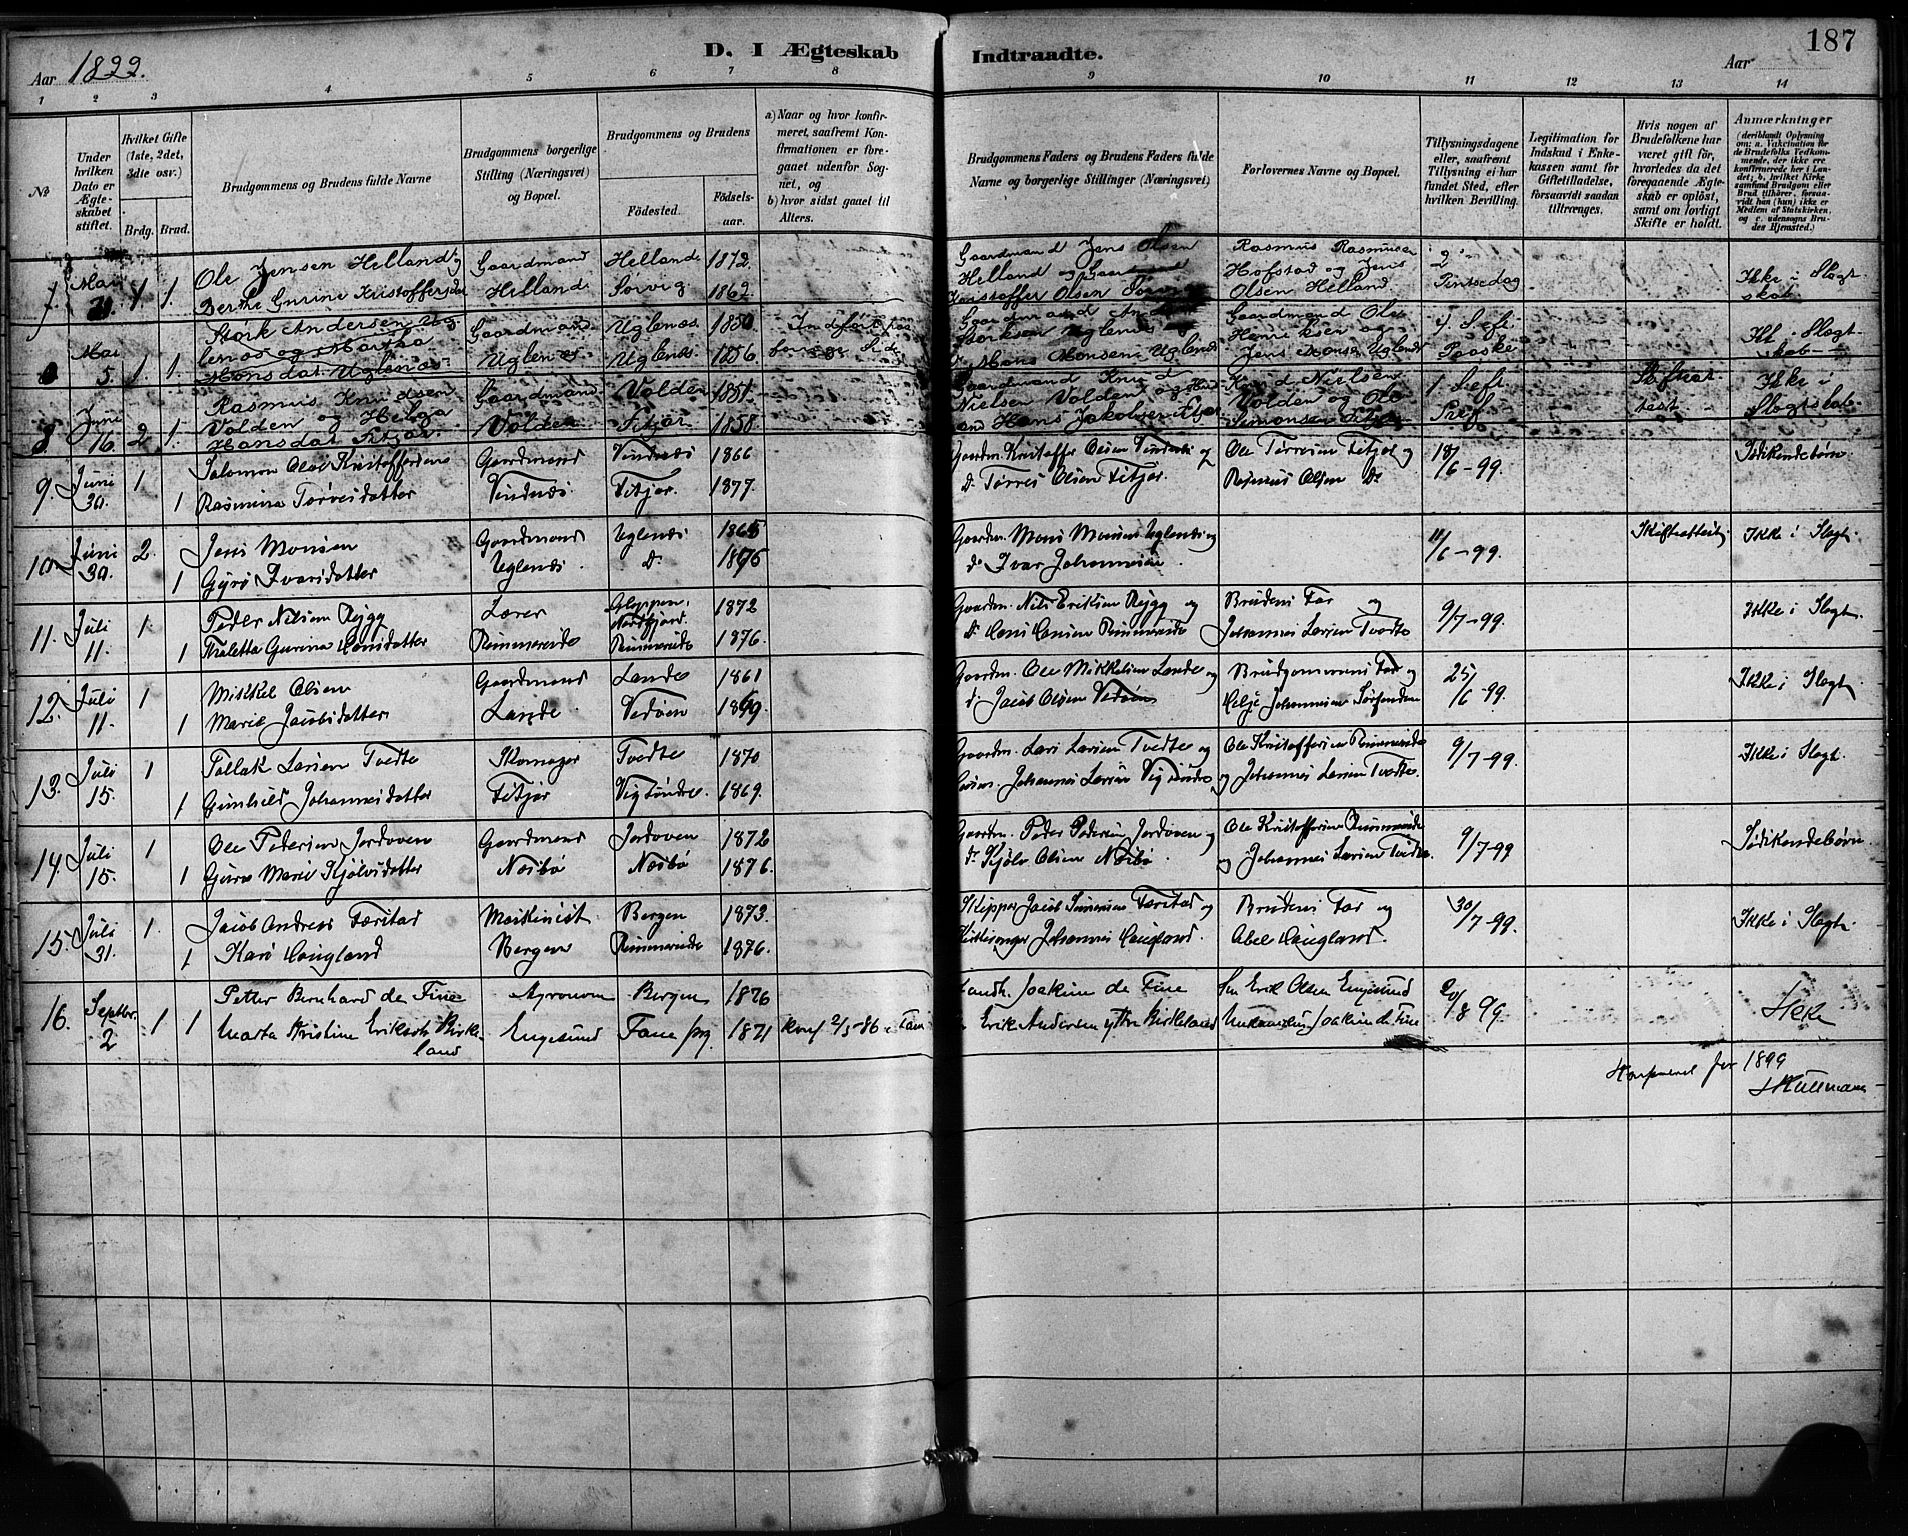 187
Aar 1899.
D. I Ægteskab Indtraadte.
Aar
1 2 3 4 5 6 7 8 9 10 11 12 13 14
No
Under hvilken Dato er Ægteskabet stiftet.
Hvilket Gifte (1ste, 2det, 3die osv.)
Brdg. Brud.
Brudgommens og Brudens fulde Navne
Brudgommens borgerlige Stilling (Næringsvei) og Bopæl.
Brudgommens og Brudens
Fødested.
Fødselsaar.
a) Naar og hvor konfirmeret, saafremt Konfirmationen er foregaaet udenfor Sognet, og
b) hvor sidst gaaet til Alters.
Brudgommens Faders og Brudens Faders fulde Navne og borgerlige Stillinger (Næringsvei)
Forlovernes Navne og Bopæl.
Tillysningsdagene eller, saafremt Tillysning ei har fundet Sted, efter hvilken Bevilling.
Legitimation for Indskud i Enkekassen samt for Giftetilladelse, forsaavidt saadan tiltrænges.
Hvis nogen af Brudefolkene har været gift før, hvorledes da det foregaaende Ægteskab er opløst, samt om lovligt Skifte er holdt.
Anmærkninger
(deriblandt Oplysning om: a. Vakcination for de Brudefolks Vedkommende, der ikke ere konfirmerede her i Landet; b. hvilket Kirkesamfund Brudgom eller Brud tilhører, forsaavidt han (hun) ikke er Medlem af Statskirken, og c. udensogns Brudes Hjemsted.)
7. Mai 21. 1 1. Ole Jensen Helland og Gaardmand Helland 1872. Gaardmand Jens Olsen Rasmus Rasmusen 2
Berthe Gurine Kristoffersdat Helland Sørvig 1862 Helland og Hofstad og Jens Pintsedag Ikke i Slegt
Kristoffer Olsen Olsen Helland skab
Mai 5. 1. 1. Stork Andersen Ug Gaardmand Uglenæs 1850 Indført paa Gaardmand Gaardmand Ole
lenæs og Martha Uglenæs Uglenæs 1856 Side Storksen Uglenæs og Henriksen og Slegt
Monsdat. Uglenæs Mons Monsen Uglenæs Jens Monsen Uglenæs Paaske skab
8. Juni 16. 2 1. Rasmus Knudsen Gaardmand Volden 1851. Gaardmand Knud Knud Nielsen 1 Søft Skifteat Ikke i
Volden og Helga Volden Fitjar 1858. Nielsen Volden og Volden og Ole test Slegtskab
Hansdat Fitjar. Hans Jakobsen Fitjar Simonsen Fitjar
9. Juni 30. 1 Salomon Olai Kristoffersen Gaardmand Vindnæs 1866 Gaardm. Kristoffer Olsen Vindenæs og Ole Tørresen Fitjar og 18/6-99. Sødskendebørn
1 Rasmina Tørresdatter Vindnæs Fitjar. 1877. Do Tørres Olsen Fitjar. Rasmus Olsen Do
10. Juni 30. 2. Jens Monsen Gaardmand Uglenæs 1865 Gaardm. Mons Monsen Uglenæs og 11/6-99. Skifteattest Ikke i Slegt.
1 Gyrø Ivarsdatter Uglenæs Do 1875 do Ivar Johannesen
11. Juli 11. 1 Peder Nilsen Rygg Lærer Gloppen, Nordfjord. 1872 Gaardm. Nils Eriksen Rygg og Brudens Far og 9/7-99. Ikke i Slegt.
1 Thaletta Gurina Larsdatter Rimmereide Rimmereide 1876. do Lars Larsen Rimmereide Johannes Larsen Tvedte
12. Juli 11. 1 Mikkel Olsen Gaardmand Lande 1861 Gaardm. Ole Mikkelsen Lande og Brudgommens Far og 25/6-99. Ikke i Slegt.
1 Marie Jacobsdatter Lande Vedøen 1869 do Jacob Olsen Vedøen Helje Johannesen Sørfonden
13. Juli 15. 1 Tollak Larsen Tvedte Skomager Tvedte 1870 Gaardm. Lars Larsen Tvedte og Ole Kristoffersen Rimmereide 9/7-99. Ikke i Slegt.
1 Gunhild Johannesdatter Fitjar Vigsøndre. 1869. Johannes Larsen Vigsøndre og Johannes Larsen Tvedte.
14. Juli 15. 1 Ole Pedersen Jordoven Gaardmand Jordoven 1872 Gaardm. Peder Pedersen Jordoven og Ole Kristoffersen Rimmereide 9/7-99 Sødskendebørn
1 Gurine Marie Kjølvsdatter Næsbø Næsbø 1876. do Kjølv Olsen Næsbø og Johannes Larsen Tvedte.
15. Juli 31. 1. Jacob Andreas Færstad Maskinist Bergen 1873. Skipper Jacob Færstad og Brudens Far og 30/7-99. Ikke i Slegt.
1 Kari Haugland Bergen Rimmereide 1876. Kirkesanger Johannes Haugland. Abel Haugland.
16. Septbr. 2 1 1 Petter Bernhard de Fine Agronom Bergen 1876 Landh. Joakim de Fine Erik Olsen Engesund 20/8 99. Ikke
Marta Kristine Eriksdtr Birkeland Engesund Fane prg 1871 Konf 2/5-86 i Fane Erik Andersen Birkeland Joakim de Fine
Konfereret for 1899